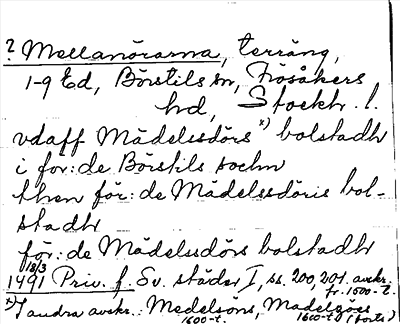 ? Mellanörarna, terräng,
1-9 Ed, Börstils sn, Frösåkers
hd, Stockh. l.
vdaff Mädelssdörs x) bolstadh
i for: de Börstils sochn
then för: de Mädelssdöris bol-
stadh
för: de Mädelssdörs bolstadh
18/3
1491 Priv. f. Sv. städer I, ss. 200, 201. avskr.
fr. 1600-t.
x) I andra avskr.: Medelsöns, Madelsöös
1600-t. 1600-t. (borts)